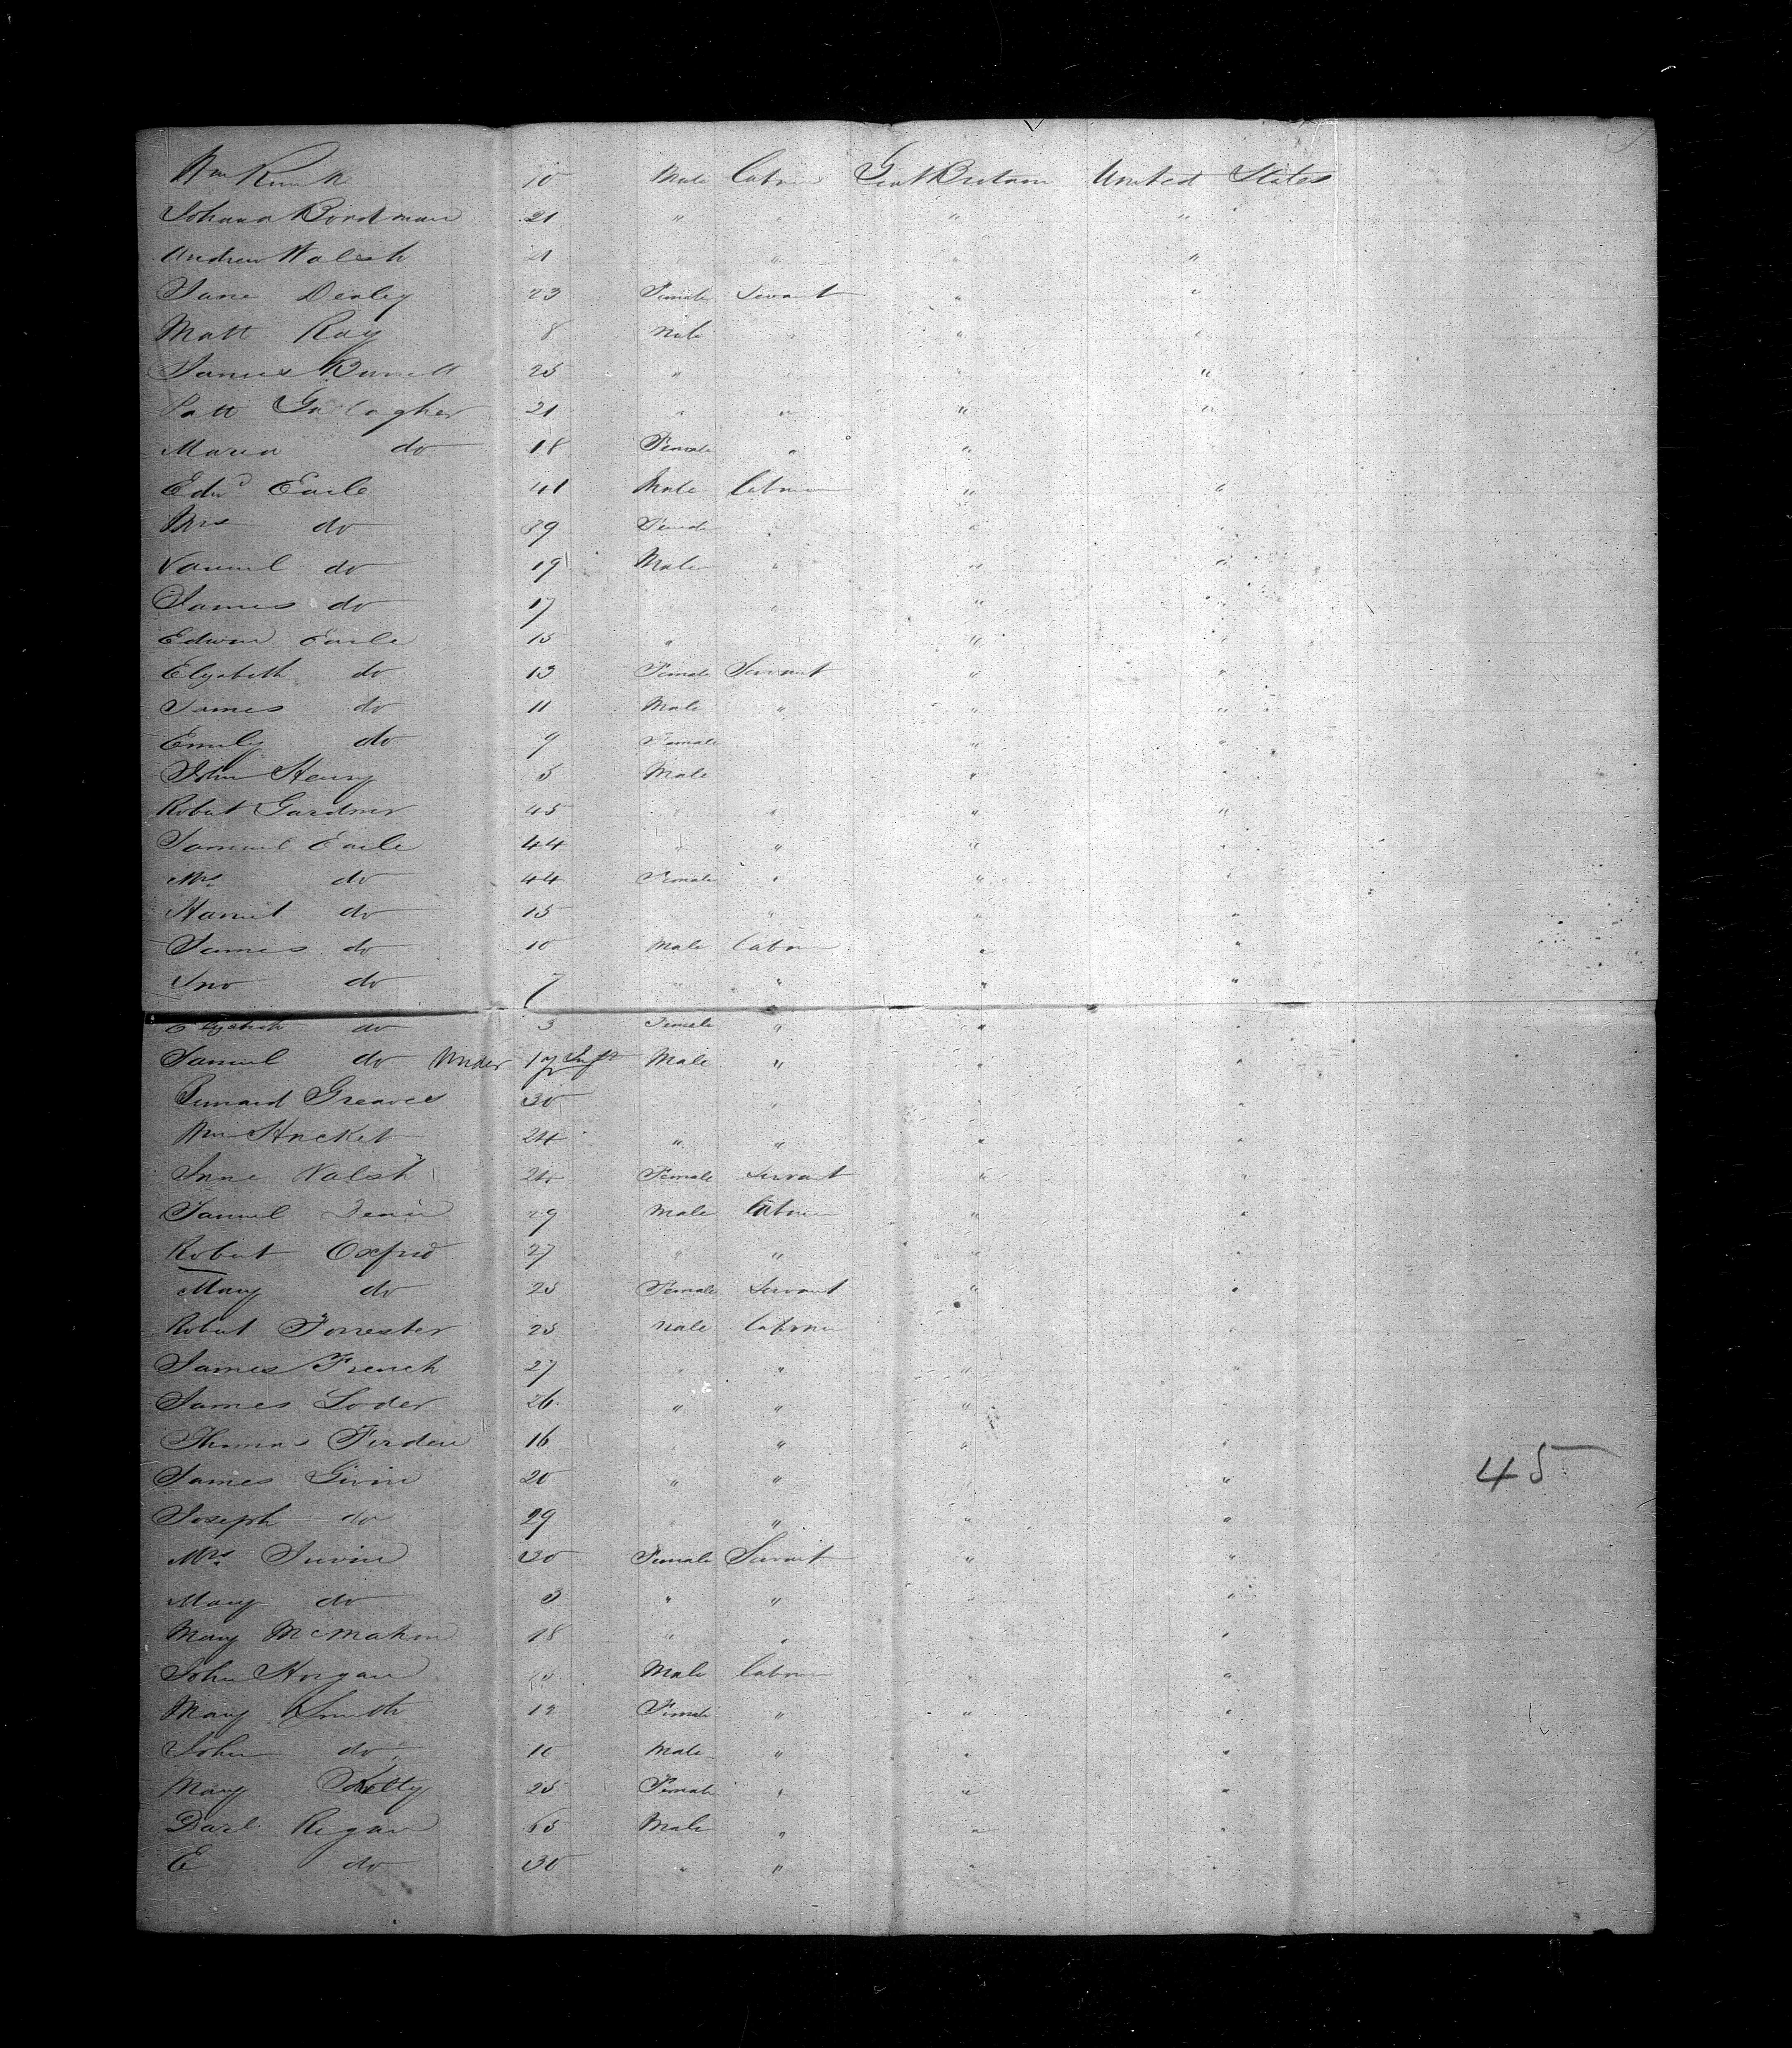 Wm 10 Male Labour Great Britain United States
Johana Bordman 21 " " " "
Andrew Walsh 21 " " " "
Jane Dealey 23 Female Servant " "
Matt Ray 8 Male " " "
James Burrell 25 " " " "
Patt Gallagher 21 " " " "
Maria do 18 Female " "
Edwd Earle 41 Male Labour " "
Mrs do 39 Female " " "
Samuel do 19 Male " " "
James do 17 " " "
Edwin Earle 15 " " "
Elyzabeth do 13 Female Servant " "
James do 11 Male " " "
Emily do 9 Female " "
John Henry 5 Male " "
Robert Gardner 45 " " " "
Samuel Earle 44 " " " "
Mrs do 44 Female " " "
Harriet do 15 " " "
James do 10 Male Labour " "
Jno do 7 " " " "
Elyzabeth do 3 Female " " "
Samuel do Under 1 yr Inft Male " " "
Bernard Greaves 30 " " "
Wm Hacket 24 " " " "
Anne Walsh 20 Female Servant " "
Samuel 29 Male Labour " "
Robert Oxford 27 " " " "
Mary do 25 Female Servant " "
Robert Forrester 25 Male Labour " "
James French 27 " " " "
James Loder 26 " " " "
Thomas 16 " " "
James Girvin 20 " " "
Joseph do 29 " " " "
Mrs Irvin 30 Female Servant " "
Mary do 3 " " "
Mary McMahon 18 " " " "
John Horgan Male Labour " "
Mary Smith 12 Female " " "
John do 10 Male " " "
Mary 25 Female " " "
Danl. Regan 65 Male " " "
E do 30 " " " "
45